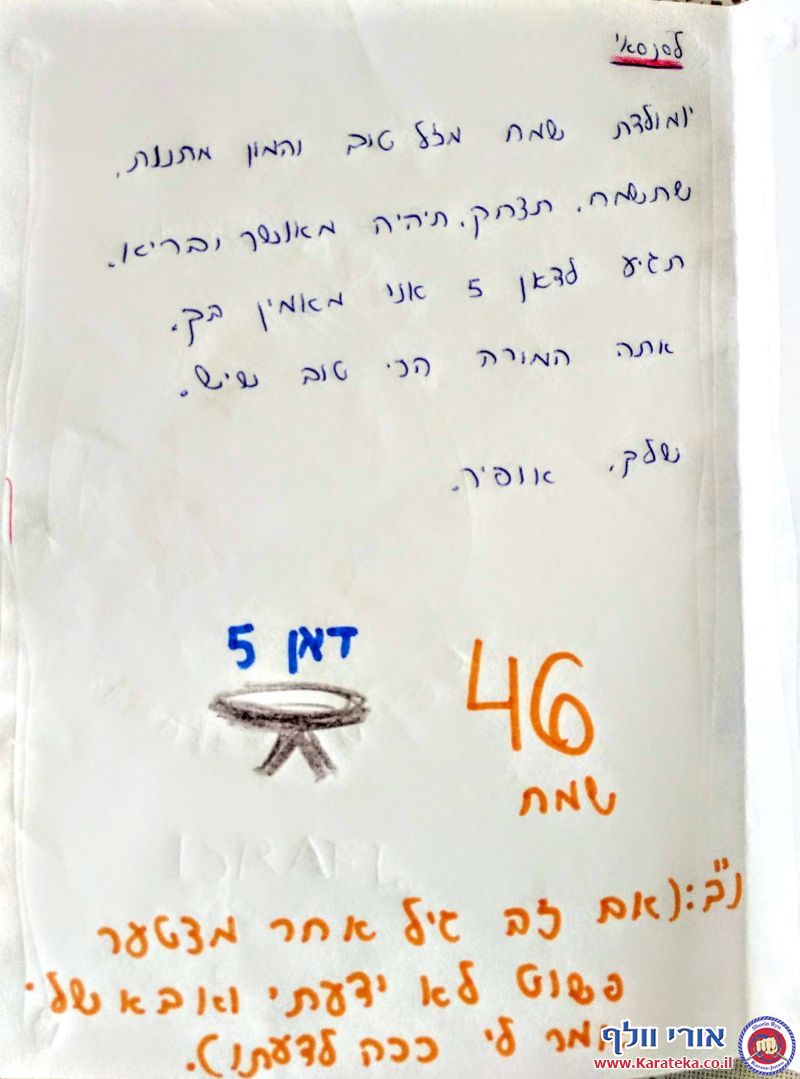 לסנסאי
יומולדת שמח מזל טוב והמון מתנות.
שתשמח. תצחק. תיהיה מאושר ובריא.
תגיע לדאן 5 אני מאמין בך.
אתה המורה הכי טוב שיש.
שלך, אופיר.
דאן 5
46
שמח
ISRAEL
נ"ב:(אם זה גיל אחר מצטער
פשוט לא ידעתי ואבא שלי
אמר לי ככה לדעתו).
אורי וולף
www.Karateka.co.il